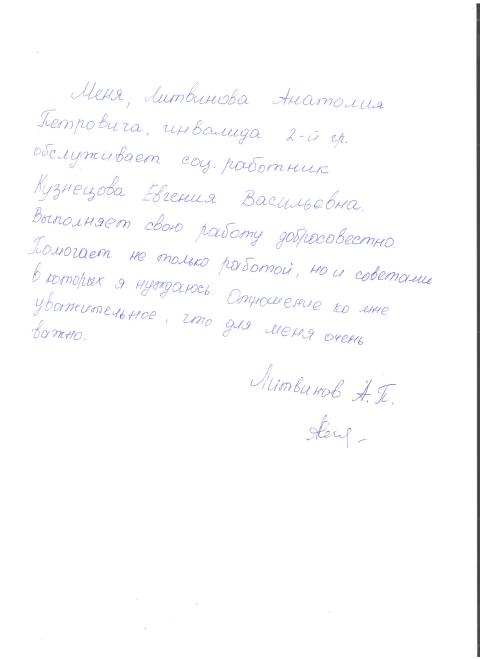 Меня, Литвинова Анатолия
Петровича, инвалида 2-й гр.
обслуживает соц. работник
Кузнецова Евгения Васильевна.
Выполняет свою работу добросовестно
Помогает не только работой, но и советами
в которых я нуждаюсь. Отношение ко мне
уважительное, что для меня очень
важно.
Литвинов А.П.